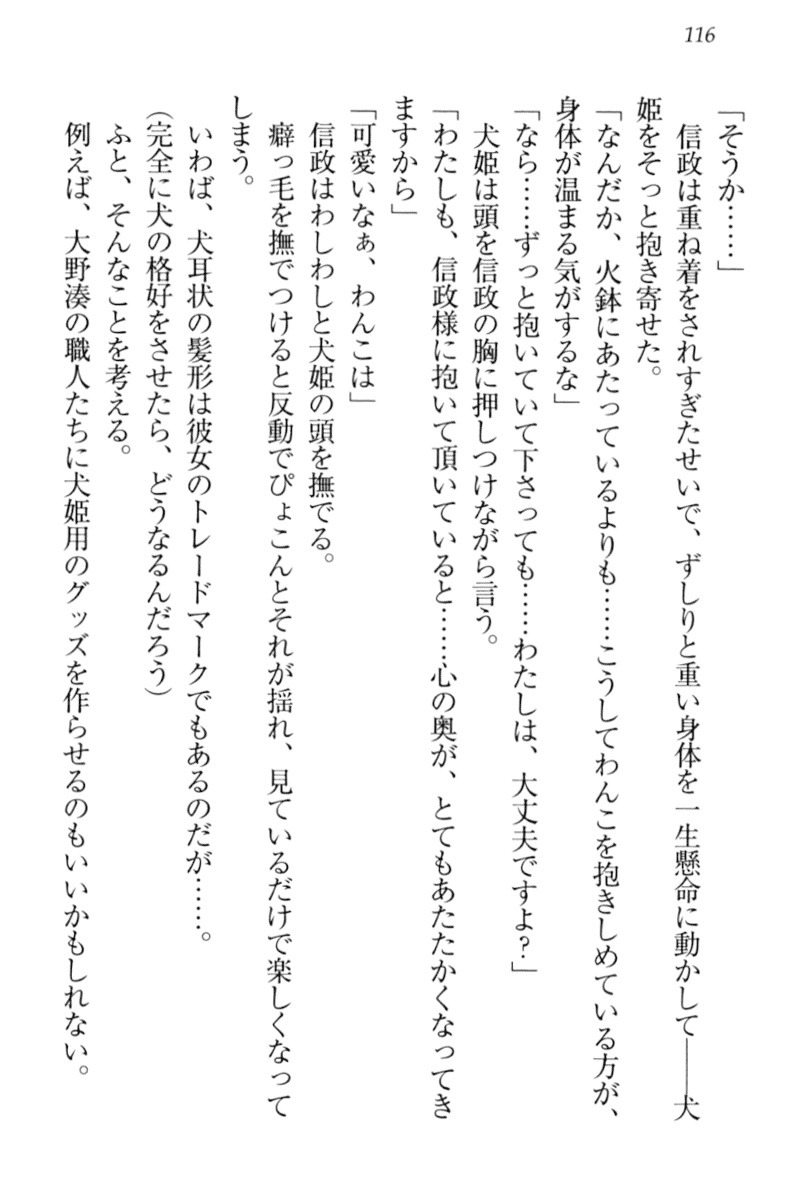 116
「そうか……」
　信政は重ね着をされすぎたせいで、ずしりと重い身体を一生懸命に動かして――犬
姫をそっと抱き寄せた。
「なんだか、火鉢にあたっているよりも……こうしてわんこを抱きしめている方が、
身体が温まる気がするな」
「なら……ずっと抱いていて下さっても……わたしは、大丈夫ですよ？」
　犬姫は頭を信政の胸に押しつけながら言う。
「わたしも、信政様に抱いて頂いていると……心の奥が、とてもあたたかくなってき
ますから」
「可愛いなぁ、わんこは」
　信政はわしわしと犬姫の頭を撫でる。
　癖っ毛を撫でつけると反動でぴょこんとそれが揺れ、見ているだけで楽しくなって
しまう。
　いわば、犬耳状の髪形は彼女のトレードマークでもあるのだが……。
（完全に犬の格好をさせたら、どうなるんだろう）
　ふと、そんなことを考える。
　例えば、大野湊の職人たちに犬姫用のグッズを作らせるのもいいかもしれない。